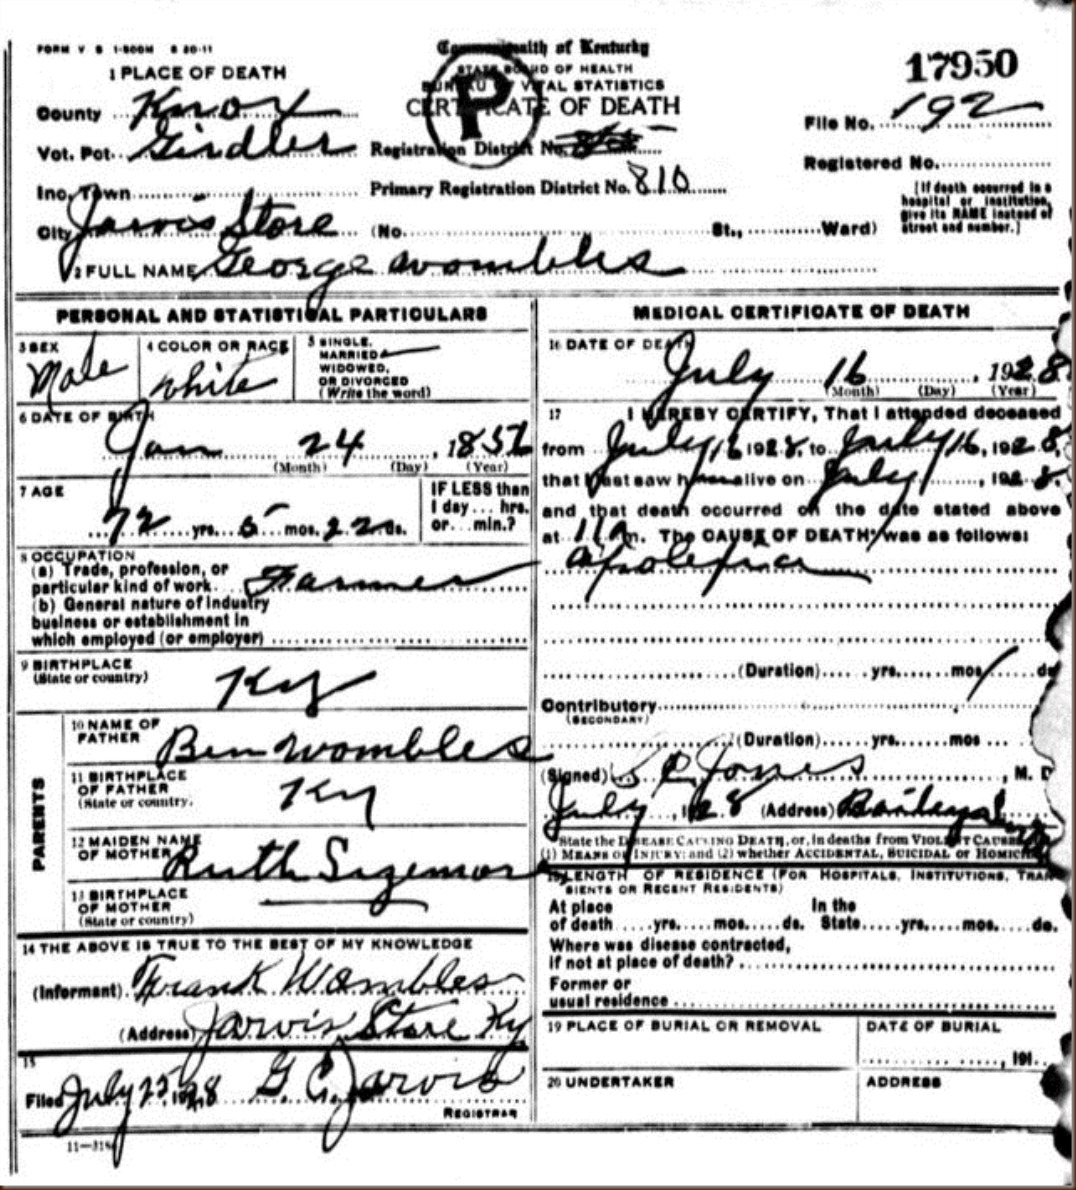 FORM V S 1-500M 8 20-11
Commonwealth of Kentucky
STATE BOARD OF HEALTH
BUREAU OF VITAL STATISTICS
CERTIFICATE OF DEATH
P
17950
1 PLACE OF DEATH
County Knox
File No. 192
Vot. Pct. Girdler Registration District No.
Registered No.
Inc. Town Primary Registration District No. 810
[If death occurred in a hospital or institution, give its NAME instead of street and number.]
City Jarvis Store (No. St., Ward)
2 FULL NAME George Wombles
PERSONAL AND STATISTICAL PARTICULARS
3 SEX Male
4 COLOR OR RACE white
5 SINGLE, MARRIED, WIDOWED, OR DIVORCED (Write the word)
6 DATE OF BIRTH
Jan 24, 1856
(Month) (Day) (Year)
7 AGE
72 yrs. 5 mos. 22 ds.
IF LESS than 1 day... hrs. or... min.?
8 OCCUPATION
(a) Trade, profession, or particular kind of work Farmer
(b) General nature of industry business or establishment in which employed (or employer)
9 BIRTHPLACE (State or country) Ky
PARENTS
10 NAME OF FATHER Ben Wombles
11 BIRTHPLACE OF FATHER (State or country) Ky
12 MAIDEN NAME OF MOTHER Ruth Sizemore
13 BIRTHPLACE OF MOTHER (State or country)
14 THE ABOVE IS TRUE TO THE BEST OF MY KNOWLEDGE
(Informant) Frank Wombles
(Address) Jarvis Store Ky
15
Filed July 25, 1928 G. C. Jarvis
REGISTRAR
11-318
MEDICAL CERTIFICATE OF DEATH
16 DATE OF DEATH
July 16, 1928
(Month) (Day) (Year)
17 I HEREBY CERTIFY, That I attended deceased
from July 16 1928, to July 16, 1928,
that I last saw him alive on July, 1928,
and that death occurred on the date stated above
at 11 a m. The CAUSE OF DEATH was as follows:
apolepxia
(Duration) yrs. mos ds
Contributory
(SECONDARY)
(Duration) yrs. mos
(Signed) S C Jones, M. D
July, 1928 (Address)
State the DISEASE CAUSING DEATH, or, in deaths from VIOLENT CAUSES
(1) MEANS OF INJURY; and (2) whether ACCIDENTAL, SUICIDAL or HOMICIDAL
18 LENGTH OF RESIDENCE (FOR HOSPITALS, INSTITUTIONS, TRANSIENTS OR RECENT RESIDENTS)
At place of death yrs. mos. ds. In the State yrs. mos. ds.
Where was disease contracted,
If not at place of death?
Former or
usual residence
19 PLACE OF BURIAL OR REMOVAL
DATE OF BURIAL
, 191
20 UNDERTAKER
ADDRESS